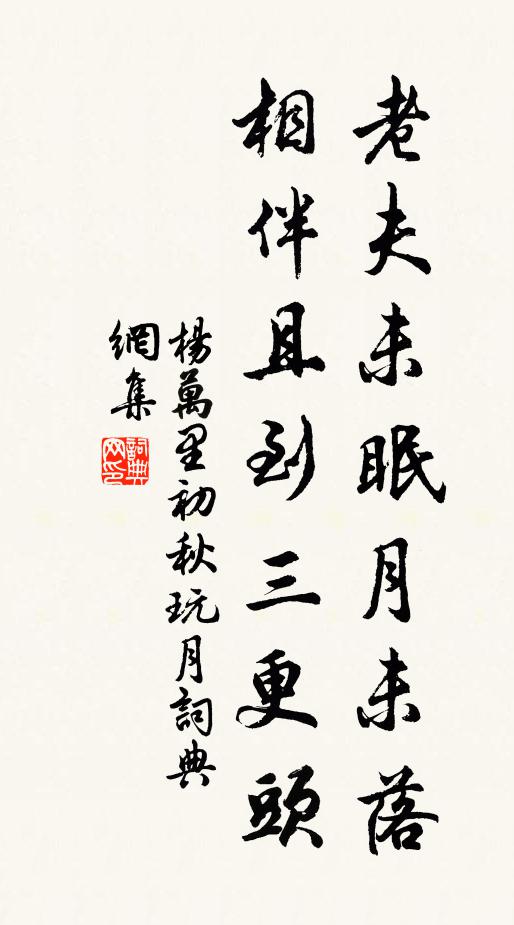 老夫未眠月未落
相伴且到三更頭
楊萬里初秋玩月詞典
網集
詞典网印